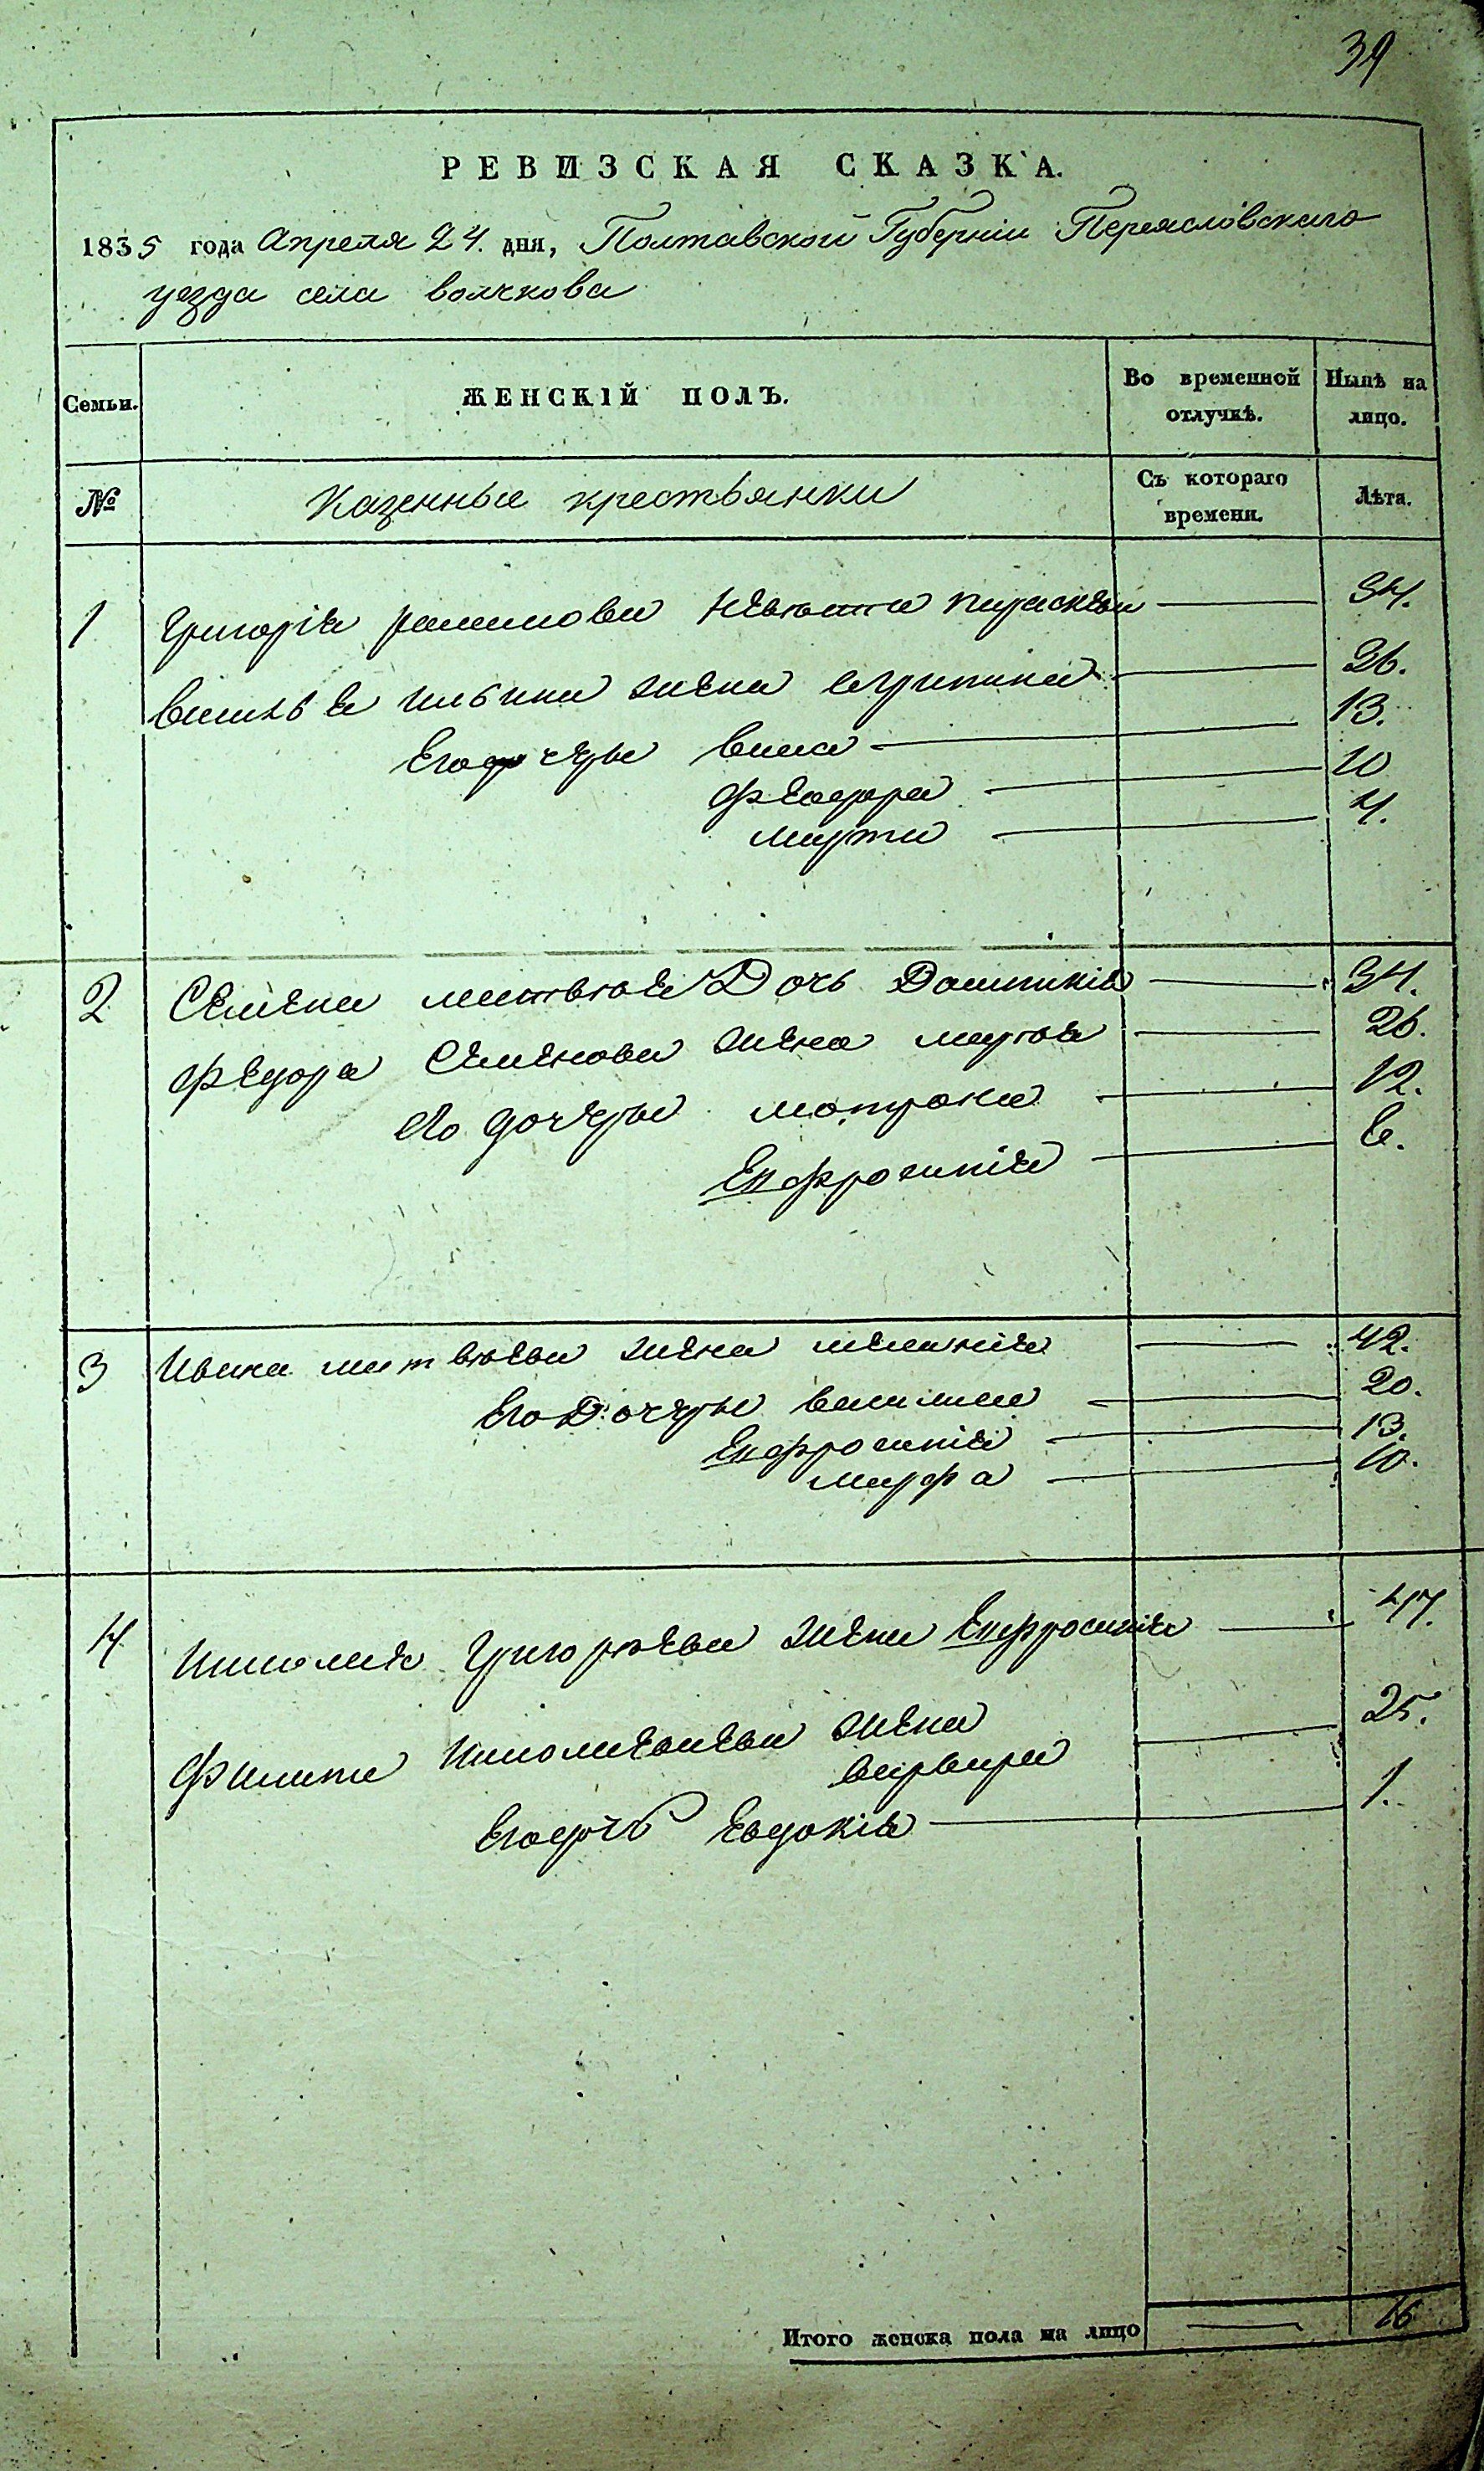 39
РЕВИЗСКАЯ СКАЗКА.
1835 года Апреля 24. дня, Полтавской Губерніи Переясловскаго
уезда села волчкова
Семьи. ЖЕНСКІЙ ПОЛЪ. Во временной отлучкѣ. Нынѣ на лицо.
№ Казенные крестьянки Съ котораго времени. Лѣта.
1 Григорія невѣстка параскевия 34.
василья ильина жена агрипина 26.
Его дочеры васса 13.
феодора 10
марта 4.
2 Семена Дочь 34.
федора Семенова жена марья 26.
его дочеры мотрона 12.
Ефросинія 6.
3 Ивана матвѣева жена меланія 42.
Его Дочеры василиса 20.
Ефросинія 13.
марфа 10.
4 Григорьева жена Ефросинія 47.
Филипа жена
варвара 25.
Его дочь Евдокія 1.
Итого женска пола на лицо 16